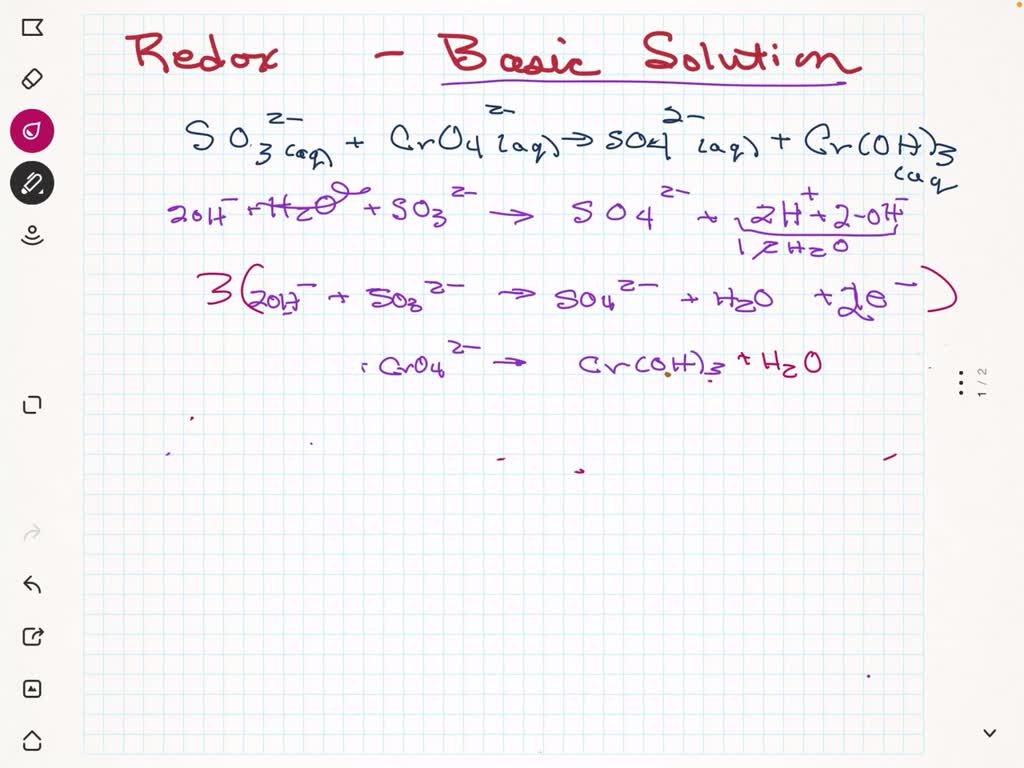 Redox - Basic Solution
SO3²⁻ (aq) + CrO4²⁻ (aq) → SO4²⁻ (aq) + Cr(OH)3 (aq
2OH⁻ + H2O + SO3²⁻ → SO4²⁻ + 2H⁺ + 2-OH⁻
1 2H2O
3(2OH⁻ + SO3²⁻ → SO4²⁻ + H2O + 2e⁻)
CrO4²⁻ → Cr(OH)3 + H2O
1 / 2